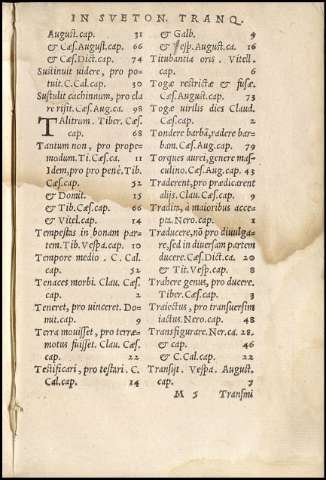 IN SVETON. TRANQ.
August.cap. 31
& Cæs.August.cap. 66
& Cæs.Dict.cap. 74
Sustinuit uidere, pro po-
tuit. C.Cal.cap. 30
Sustulit cachinnum, pro cla
re risit. Cæs.Aug.ca. 98
TAlitrum. Tiber. Cæs.
cap. 68
Tantum non, pro prope-
modum. Ti.Cæs.ca. 11
Idem, pro pro penè. Tib.
Cæs.cap. 52
& Domit. 15
& Tib. Cæs.cap. 66
& Vitel.cap. 14
Tempestas in bonam par-
tem. Tib.Vespa.cap. 10
Tempore medio. C. Cal.
cap. 52
Tenaces morbi. Clau. Cæs.
cap. 2
Teneret, pro uinceret. Do-
mit.cap. 9
Terra mouisset, pro terræ-
motus fuisset. Clau. Cæs.
cap. 22
Testificari, pro testari. C.
Cal.cap. 14
& Galb. 9
& Vesp. August.ca. 16
Titubantia oris. Vitell.
cap. 6
Togæ restrictæ & fusæ.
August.cap. 73
Togæ uirilis dies Claud.
Cæs.cap. 2
Tondere barbã, radere bar-
bam. Cæs.Aug.cap. 79
Torques aurei, genere mas-
culino. Cæs.Aug.cap. 43
Traderent, pro prædicarent
alijs. Clau.Cæs.cap. 9
Traditũ, à maioribus acce-
pit. Nero.cap. 1
Traducere, nõ pro diuulga-
re, sed in diuersam partem
ducere. Cæs.Dict.ca. 20
& Tit. Vesp. 8
Trahere genus, pro ducere.
Tiber. Cæs.cap. 3
Traiectus, pro transuersim
iactus. Nero.cap. 48
Transfigurare. Ner.ca. 28.
& cap. 46
& C.Cal.cap. 22
Transijt. Vespa. August.
cap. 7
M 5 Transmi